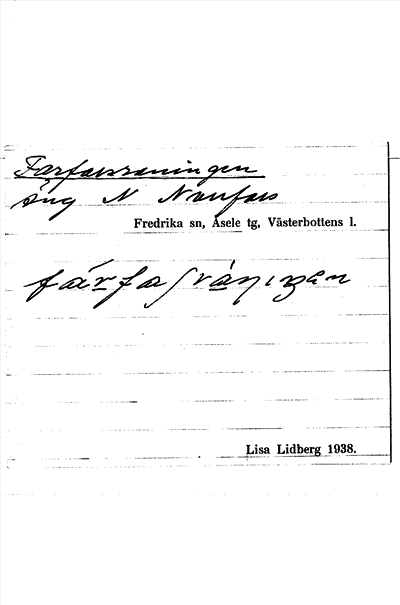 Farfarsraningen
äng N Norrfors
Fredrika sn, Åsele tg, Västerbottens l.
Lisa Lidberg 1938.